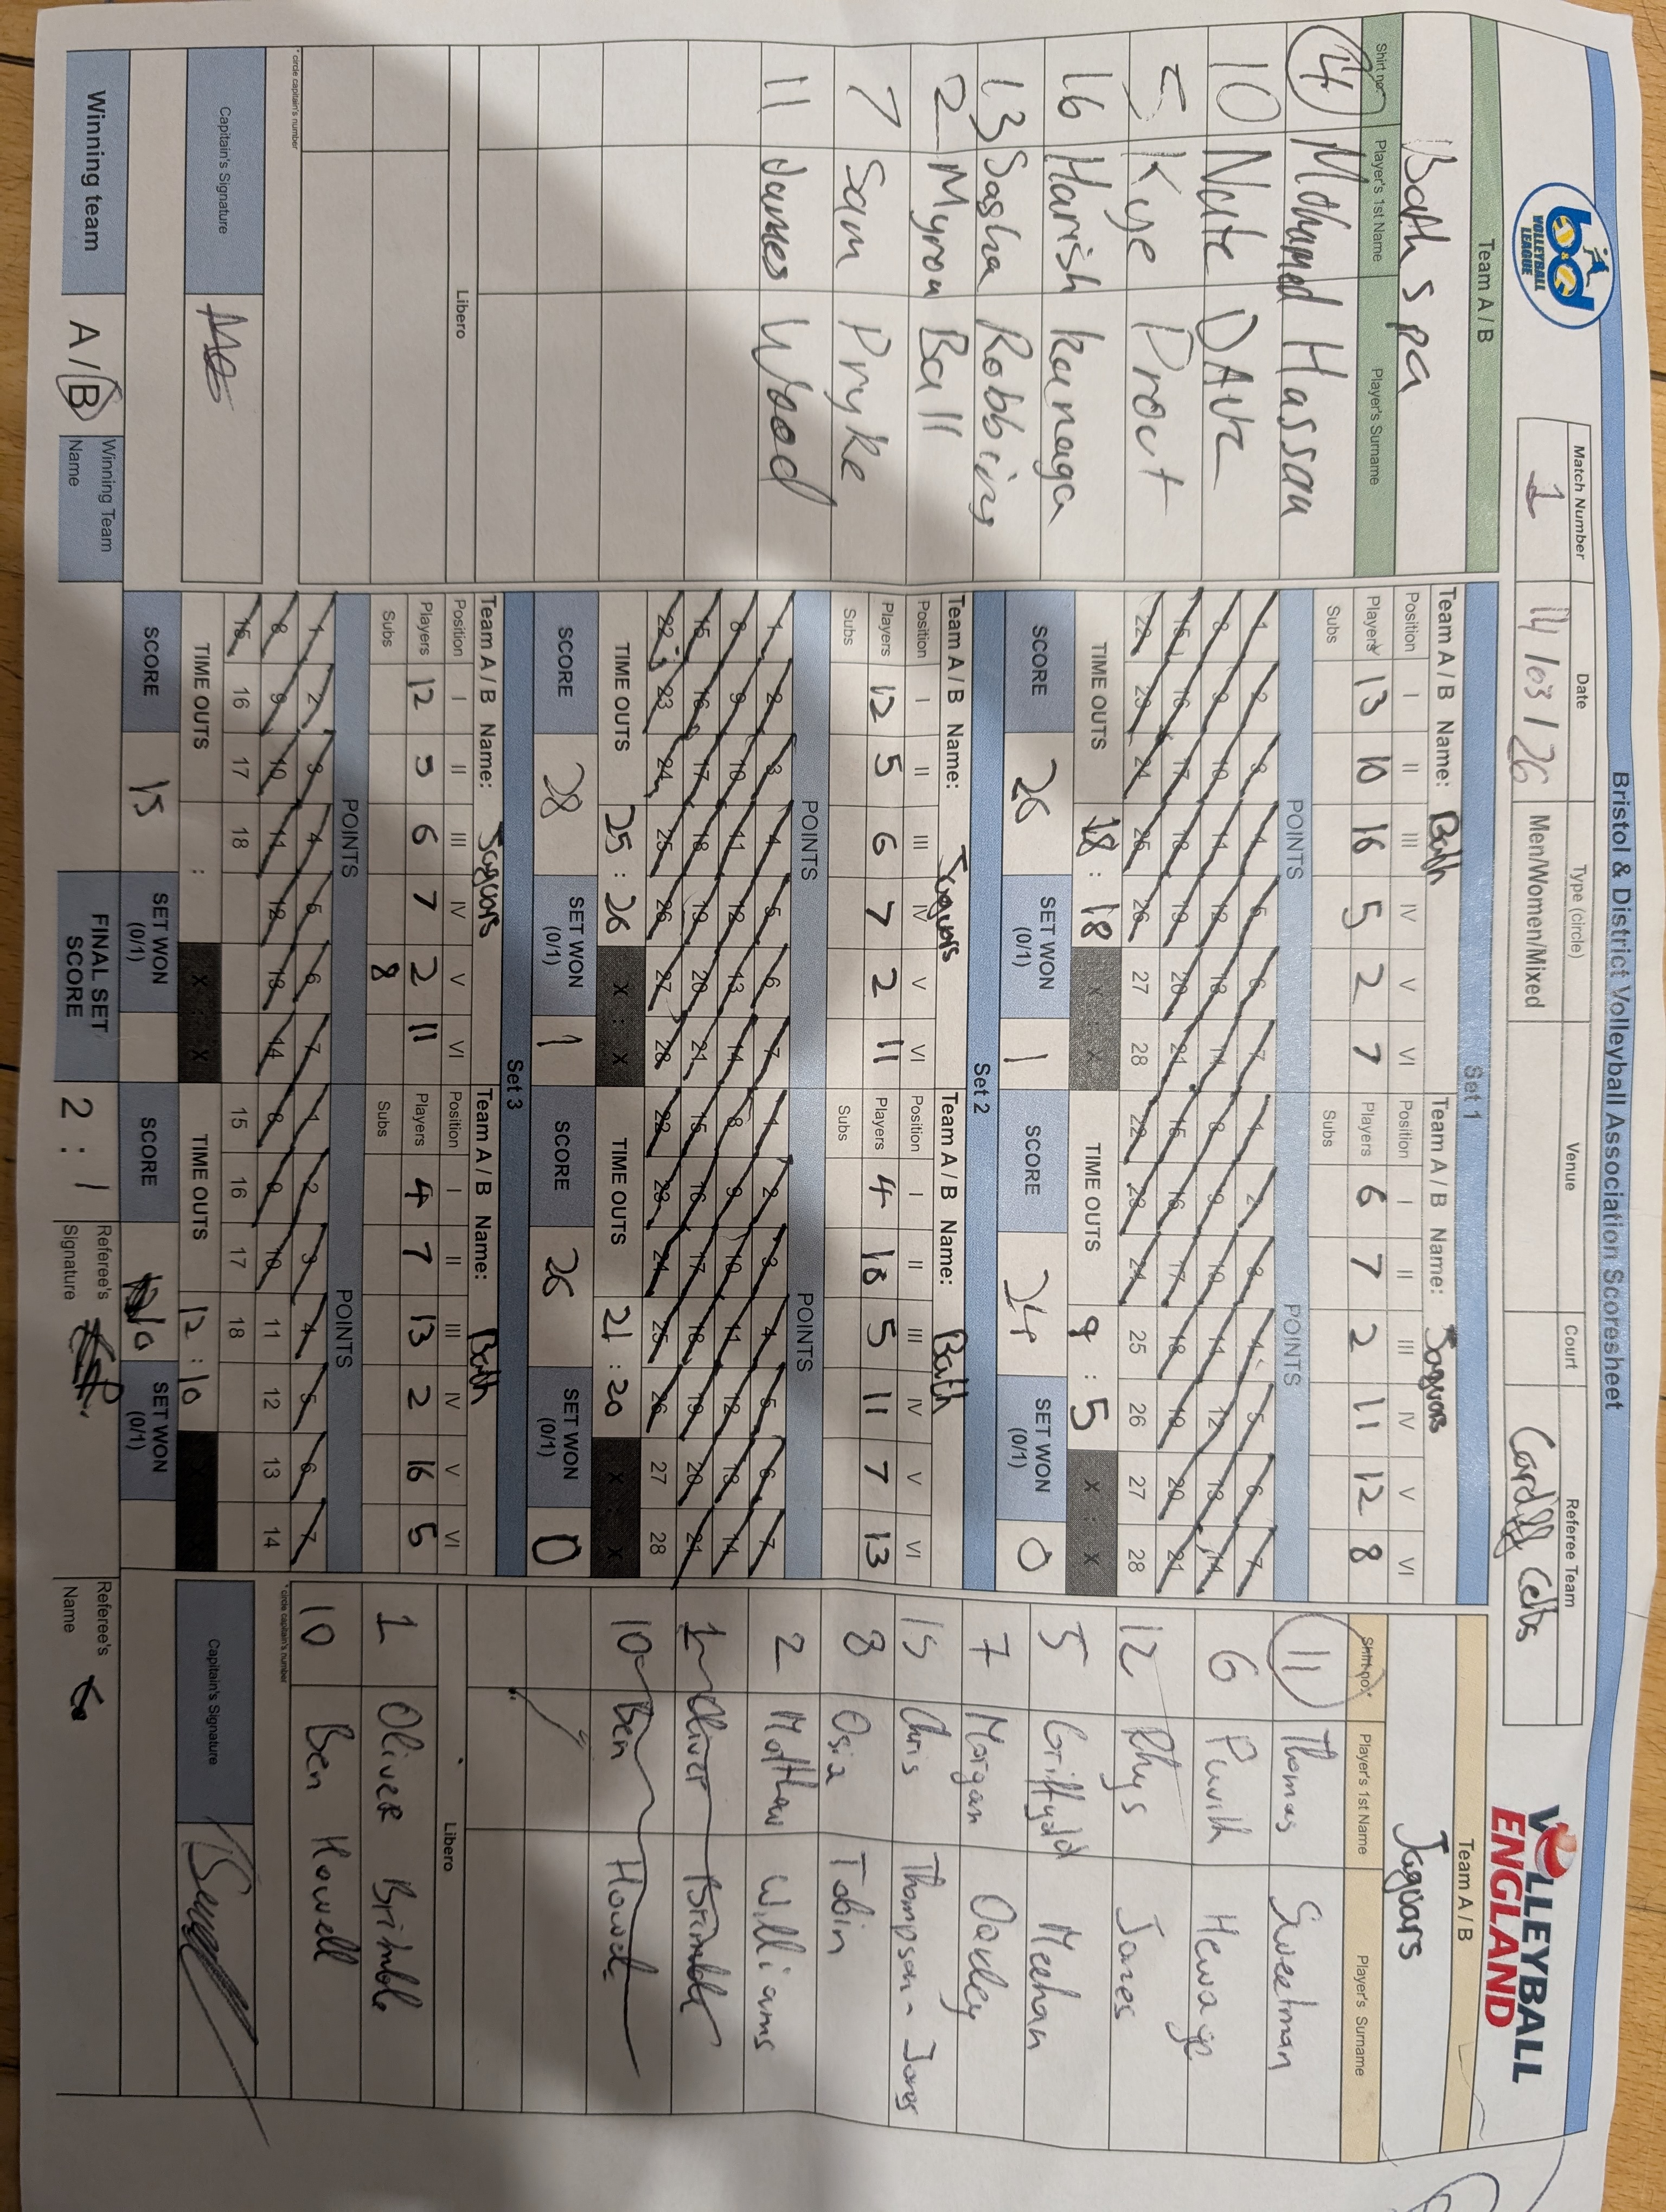 Bristol & District Volleyball Association Scoresheet
bd
VOLLEYBALL LEAGUE
Match Number
Date
Type (circle)
Venue
Court
Referee Team
1
14/03/26
Men/Women/Mixed
Cardiff Celts
VOLLEYBALL
ENGLAND
Team A / B
Bath spa
Shirt no.* Player's 1st Name Player's Surname
4 Mohamed Hassan
10 Nate
5 Kye Prout
16 Harish Kanaga
13 Sasha Robbins
2 Myron Ball
7 Sam Pryke
11 James Wood
Libero
* circle captain's number
Captain's Signature
Set 1
Team A / B Name: Bath
Position I II III IV V VI
Players 13 10 16 5 2 7
Subs
POINTS
1 2 3 4 5 6 7
8 9 10 11 12 13 14
15 16 17 18 19 20 21
22 23 24 25 26 27 28
TIME OUTS 18 : 18 X : X
SCORE 26 SET WON (0/1) 1
Team A / B Name: Jaguars
Position I II III IV V VI
Players 6 7 2 11 12 8
Subs
POINTS
1 2 3 4 5 6 7
8 9 10 11 12 13 14
15 16 17 18 19 20 21
22 23 24 25 26 27 28
TIME OUTS 9 : 5 X : X
SCORE 24 SET WON (0/1) 0
Set 2
Team A / B Name: Jaguars
Position I II III IV V VI
Players 12 5 6 7 2 11
Subs
POINTS
1 2 3 4 5 6 7
8 9 10 11 12 13 14
15 16 17 18 19 20 21
22 23 24 25 26 27 28
TIME OUTS 25 : 26 X : X
SCORE 28 SET WON (0/1) 1
Team A / B Name: Bath
Position I II III IV V VI
Players 4 10 5 11 7 13
Subs
POINTS
1 2 3 4 5 6 7
8 9 10 11 12 13 14
15 16 17 18 19 20 21
22 23 24 25 26 27 28
TIME OUTS 21 : 20 X : X
SCORE 26 SET WON (0/1) 0
Set 3
Team A / B Name: Jaguars
Position I II III IV V VI
Players 12 5 6 7 2 11
Subs 8
POINTS
1 2 3 4 5 6 7
8 9 10 11 12 13 14
15 16 17 18
TIME OUTS : X : X
SCORE 15 SET WON (0/1)
Team A / B Name: Bath
Position I II III IV V VI
Players 4 7 13 2 16 5
Subs
POINTS
1 2 3 4 5 6 7
8 9 10 11 12 13 14
15 16 17 18
TIME OUTS 12 : 10
SCORE 10 SET WON (0/1)
Team A / B
Jaguars
Shirt no.* Player's 1st Name Player's Surname
11 Thomas Sweetman
6 Puwith Hewage
12 Rhys Jones
5 Griffydd Meehan
7 Morgan Oakley
15 Chris Thompson-Jones
8 Osia Tobin
2 Matthew Williams
1 Oliver Brimble
10 Ben Howell
Libero
1 Oliver Brimble
10 Ben Howell
* circle captain's number
Captain's Signature
Winning team A / B
Winning Team Name
FINAL SET SCORE 2 : 1
Referee's Signature
Referee's Name